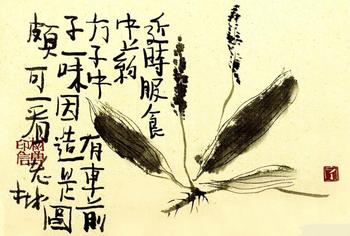 近時服食
中药
方子中有車前
子一味因造是圖
頗可一看